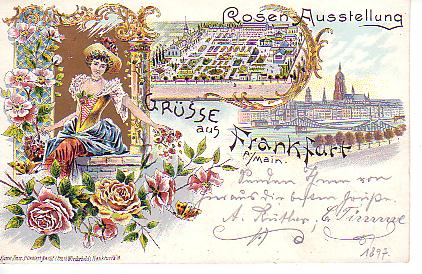 Rosen-Ausstellung
GRÜSSE
aus
Frankfurt
a/Main.
Senden Ihnen von
hier aus die besten Grüße.
A.
1897.